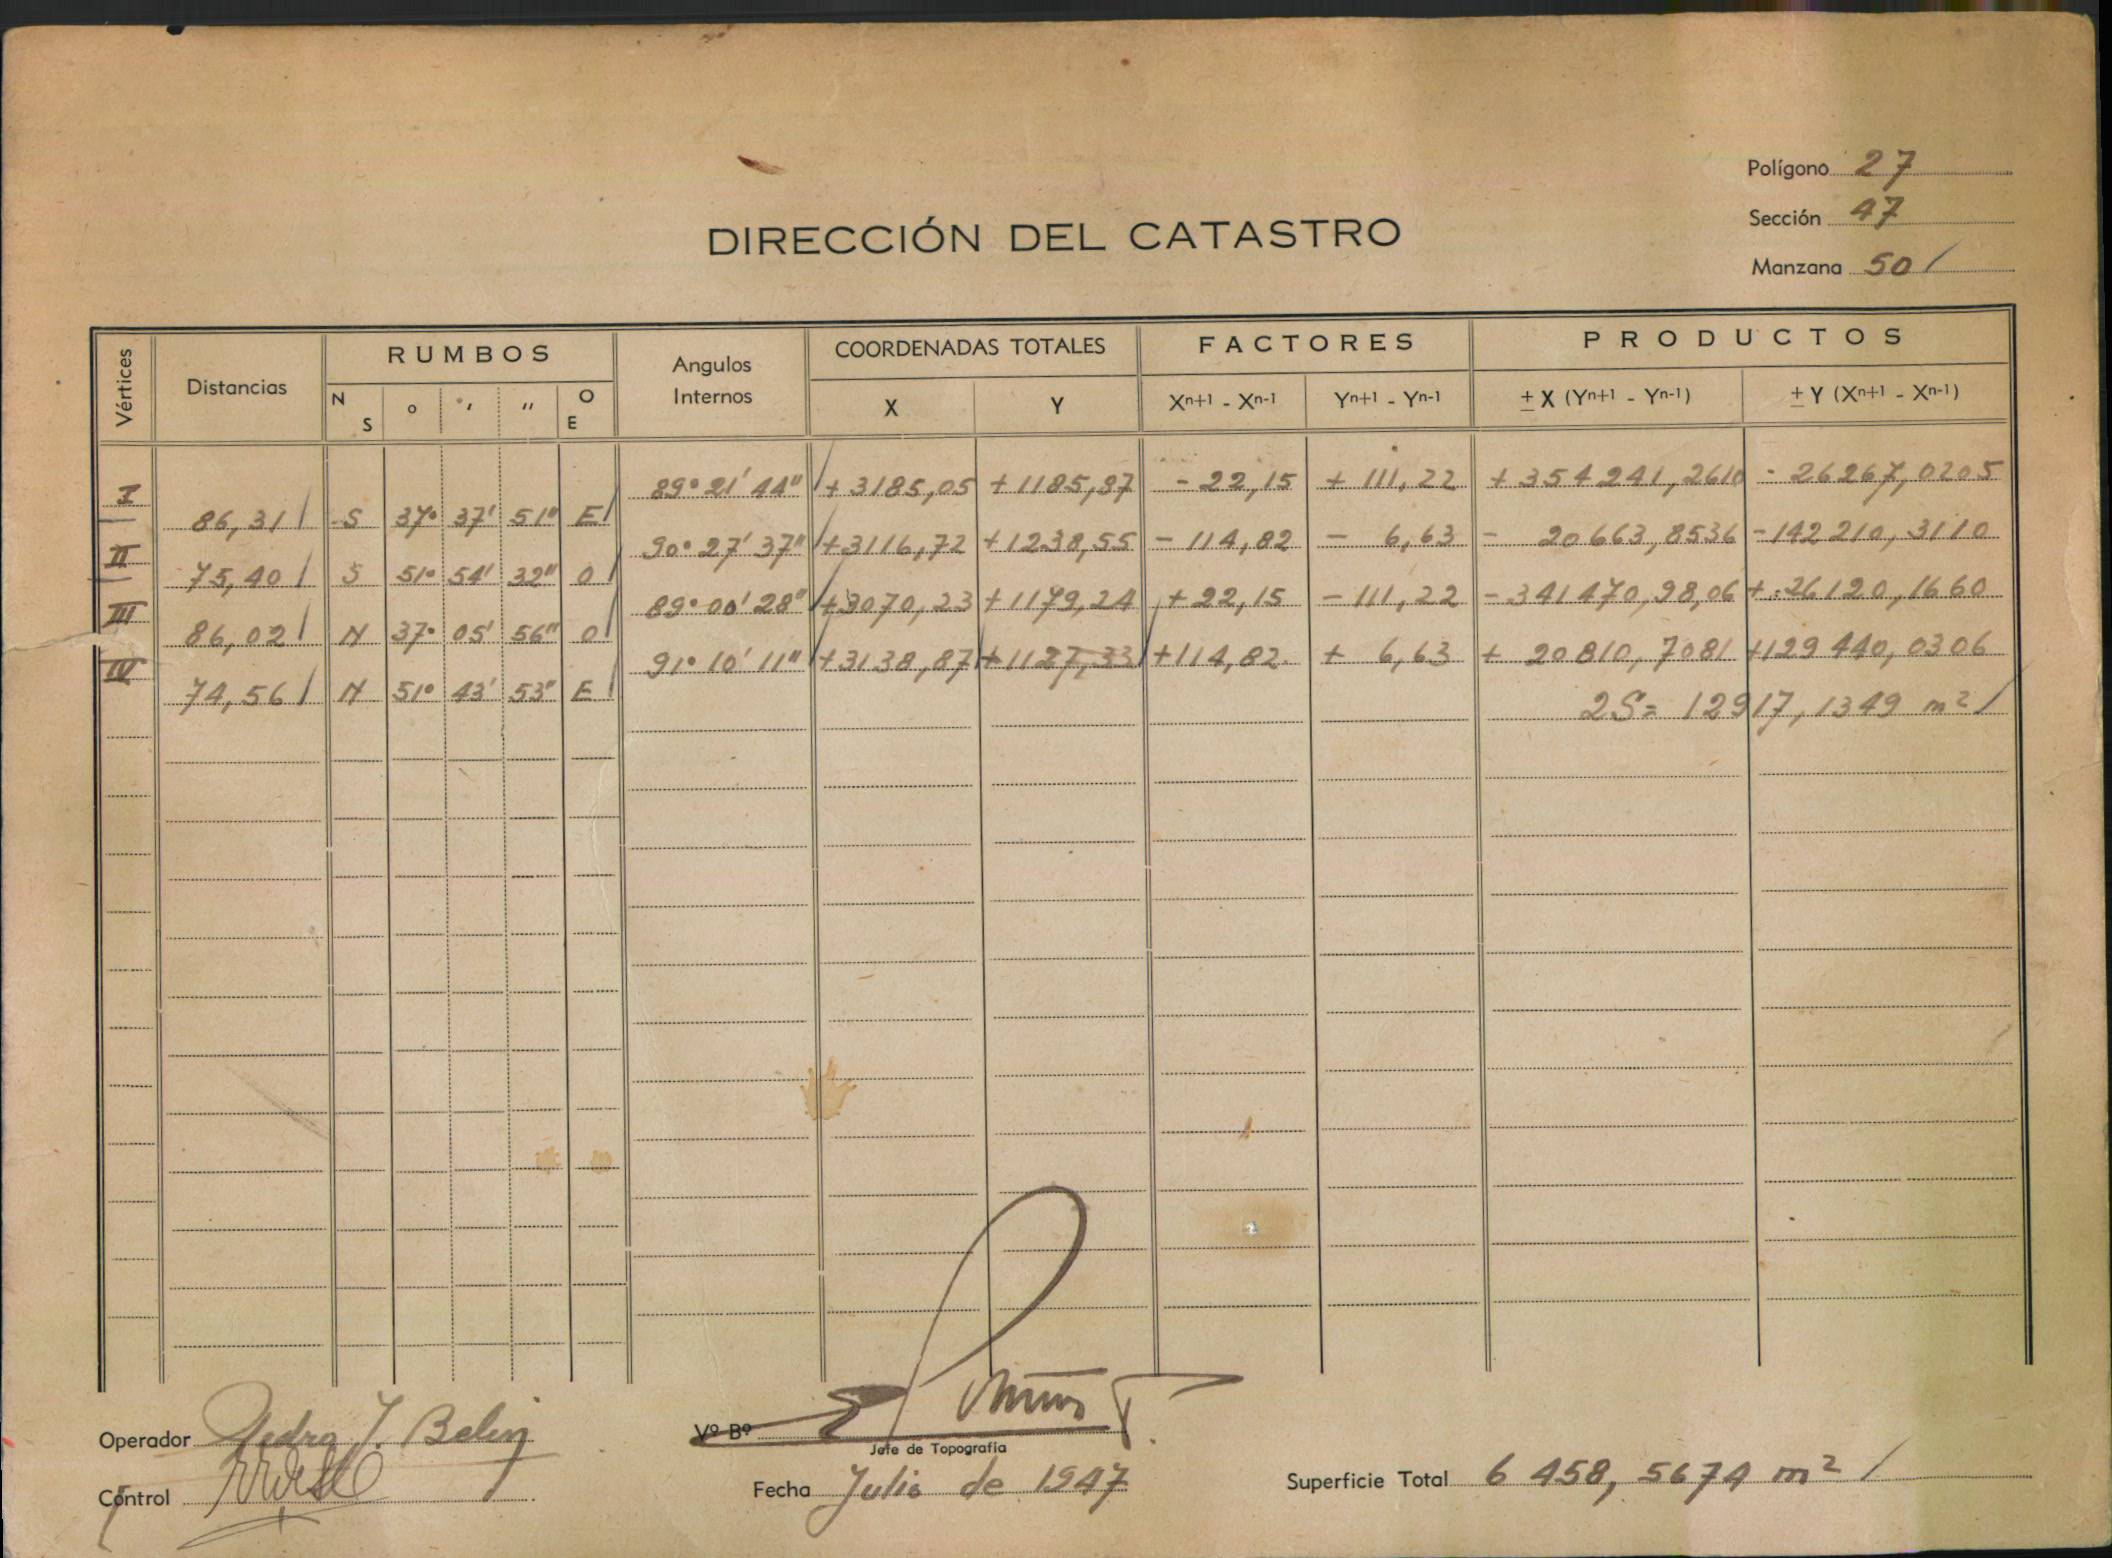 Polígono 27
Sección 47
Manzana 50 /
DIRECCIÓN DEL CATASTRO
Vértices Distancias RUMBOS Angulos Internos COORDENADAS TOTALES FACTORES PRODUCTOS
N S o ' '' O E X Y Xn+1 - Xn-1 Yn+1 - Yn-1 ± X (Yn+1 - Yn-1) ± Y (Xn+1 - Xn-1)
I 89° 21' 44" +3185,05 +1185,87 - 22,15 + 111,22 +354241,2610 - 26267,0205
86,31 / S 37° 37' 51" E /
II 90° 27' 37" +3116,72 +1238,55 - 114,82 - 6,63 - 20663,8536 -142210,3110
75,40 / S 51° 54' 32" O /
III 89° 00' 28" +3070,23 +1179,24 + 22,15 - 111,22 -341470,98,06 + 26120,1660
86,02 / N 37° 05' 56" O /
IV 91° 10' 11" +3138,87 +1127,33 +114,82 + 6,63 + 20810,7081 +129440,0306
74,56 / N 51° 43' 53" E /
2S= 12917,1349 m² /
Operador Pedro J. Belin
Vº Bº
Jefe de Topografía
Control
Fecha Julio de 1947
Superficie Total 6 458, 5674 m² /